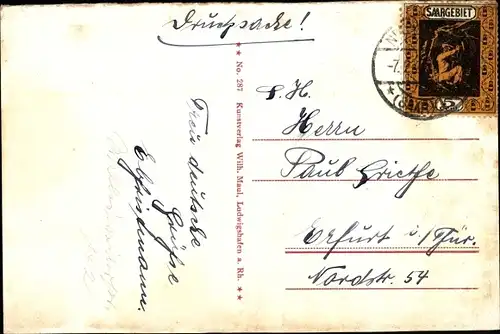 Drucksache!
SAARGEBIET
5
No. 287 Kunstverlag Wilh. Maul, Ludwigshafen a. Rh.
Treu deutsche
Grüsse
S. H.
Herrn
Paul Griethe
Erfurt i/Thür.
Nordstr. 54